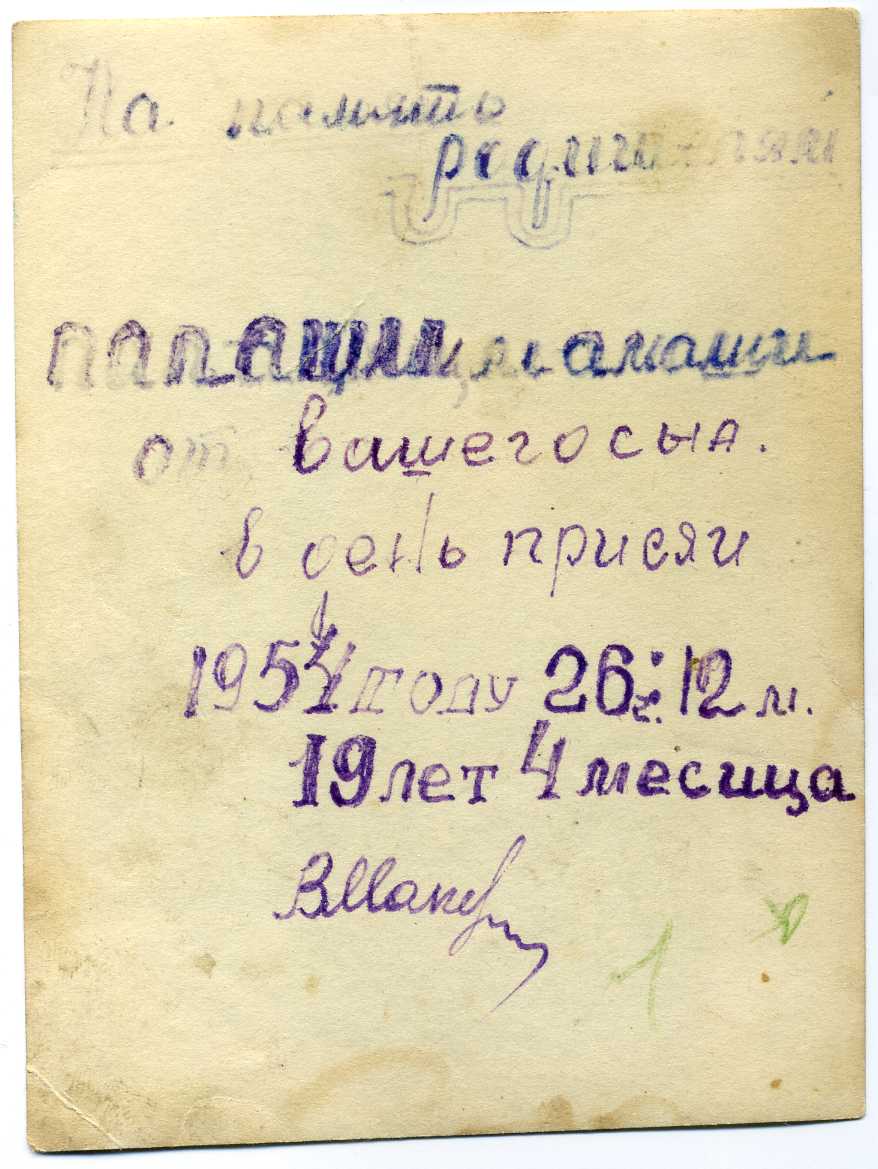 На память
родителям
папаши, мамаши
от вашего сына.
в день присяги
1954 году 26 г. 12 м.
19 лет 4 месица
1